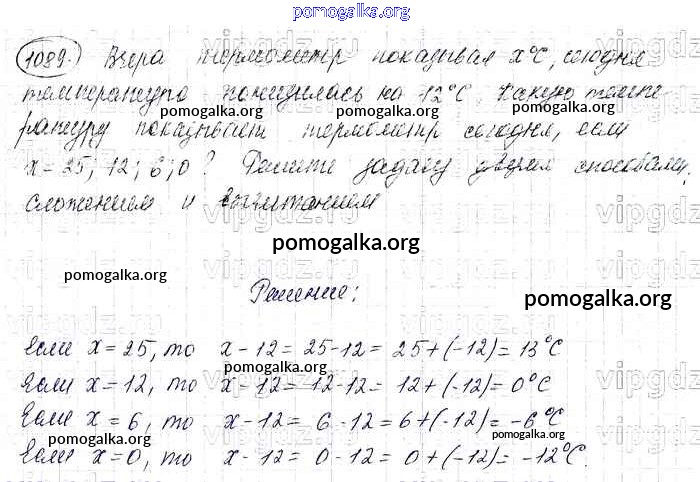 pomogalka.org
1089. Вчера термометр показывал x°C, сегодня
температура понизилась на 12°C. Какую темпе
ратуру показывает термометр сегодня, если
x = 25; 12; 6; 0? Решите задачу двумя способами,
сложением и вычитанием
pomogalka.org
pomogalka.org
pomogalka.org
vipgdz.ru
pomogalka.org
pomogalka.org
Решение:
pomogalka.org
Если x = 25, то x - 12 = 25 - 12 = 25 + (-12) = 13°C
Если x = 12, то x - 12 = 12 - 12 = 12 + (-12) = 0°C
pomogalka.org
Если x = 6, то x - 12 = 6 - 12 = 6 + (-12) = -6°C
pomogalka.org
pomogalka.org
Если x = 0, то x - 12 = 0 - 12 = 0 + (-12) = -12°C.